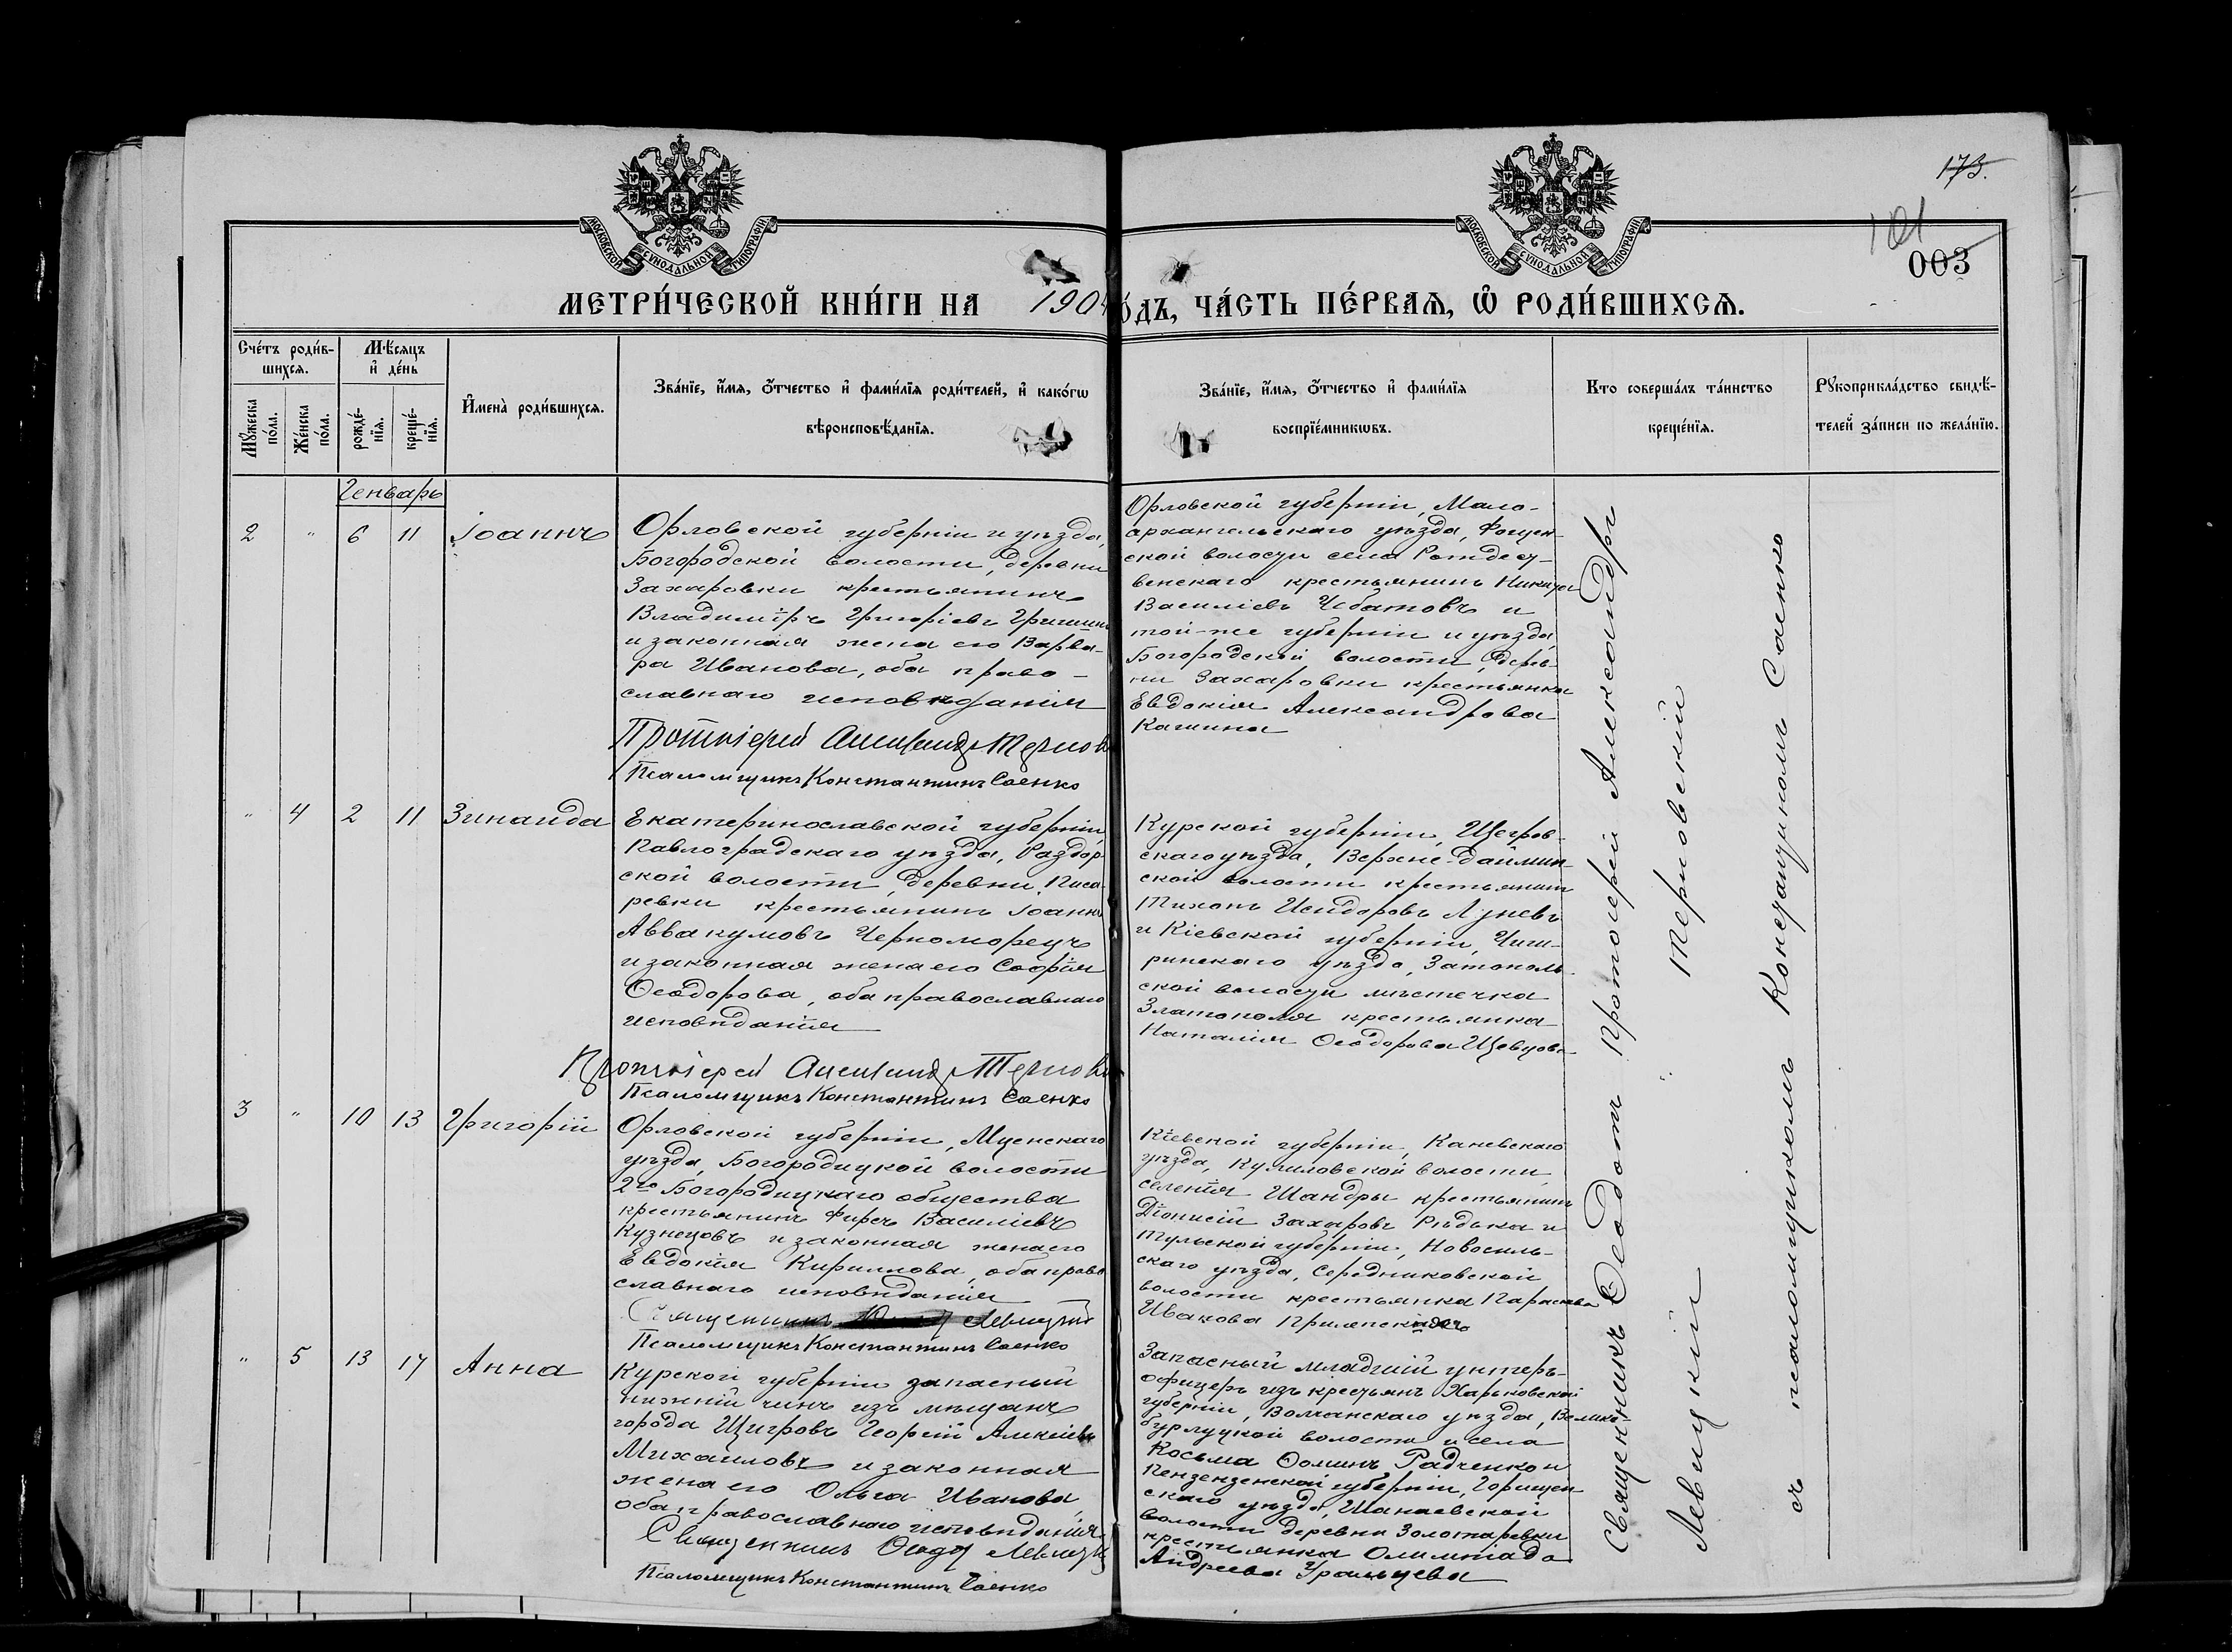 173.
101
003
МОСКОВСКОЙ СѴНОДАЛЬНОЙ ТИПОГРАФІИ
МОСКОВСКОЙ СѴНОДАЛЬНОЙ ТИПОГРАФІИ
МЕТРИ́ЧЕСКОЙ КНИ́ГИ НА 1904
ГО́ДЪ, ЧА́СТЬ ПЕ́РВАЯ, Ѡ РОДИ́ВШИХСЯ.
Сче́тъ роди́в-
шихся.
Мѣ́сяцъ
и де́нь
Мꙋ́жеска
по́ла.
Же́нска
по́ла.
рожде́-
нїя.
креще́-
нїя.
Имена̀ роди́вшихся.
Зва́нїе, и́мя, о́тчество и фами́лїя роди́телей, и како́гѡ
вѣроисповѣ́данїя.
Зва́нїе, и́мя, о́тчество и фами́лїя
воспрїе́мникѡвъ.
Кто соверша́лъ та́инство
креще́нїя.
Рꙋкоприкла́дство свидѣ́-
телей за́писи по жела́нїю.
Генварь
2 " 6 11 Іоаннъ
Орловской губерніи и уѣзда,
Богородской волости, деревни
Захаровки крестьянинъ
Владиміръ Григоріевъ Гришинъ
и законная жена его Варва-
ра Иванова, оба право-
славнаго исповѣданія
Протоіерей Александръ Тернов
Псаломщикъ Константинъ Саенко
Орловской губерніи, Мало-
архангельскаго уѣзда, Фощен-
ской волости села Рождест-
венскаго крестьянинъ Никита
Василіевъ Чебатовъ и
той-же губерніи и уѣзда,
Богородской волости, дерев-
ни Захаровки крестьянка
Евдокія Александрова
Кашина
" 4 2 11 Зинаида
Екатеринославской губерніи,
Павлоградскаго уѣзда, Раздор-
ской волости, деревни Писа-
ревки крестьянинъ Іоаннъ
Аввакумовъ Черноморецъ
и законная жена его Софія
Ѳеодорова, оба православнаго
исповѣданія
Протоіерей Александръ Тернов
Псаломщикъ Константинъ Саенко
Курской губерніи, Щегров-
скаго уѣзда, Верхне-Даймин-
ской волости крестьянинъ
Тихонъ Исидоровъ Луневъ
и Кіевской губерніи, Чиги-
ринскаго уѣзда, Затополь-
ской волости мѣстечка
Златополя крестьянка
Наталія Ѳеодорова Шевцова
3 " 10 13 Григорій
Орловской губерніи, Мценскаго
уѣзда, Богородицкой волости
2го Богородицкаго общества
крестьянинъ Фирсъ Василіевъ
Кузнецовъ и законная жена его
Евдокія Кириллова, оба право-
славнаго исповѣданія
Священникъ Левицкій
Псаломщикъ Константинъ Саенко
Кіевской губерніи, Каневскаго
уѣзда, Кумиловской волости,
селенія Шандры крестьянинъ
Діонисій Захаровъ Рѣдька и
Тульской губерніи, Новосиль-
скаго уѣзда, Середниковской
волости крестьянка Параскева
Иванова
" 5 13 17 Анна
Курской губерніи запасный
нижній чинъ изъ мѣщанъ
города Щигровъ Георгій Алексіевъ
Михаиловъ и законная
жена его Ольга Иванова,
оба православнаго исповѣданія
Священникъ Ѳеодотъ Левицкій
Псаломщикъ Константинъ Саенко
Запасный младшій унтеръ-
офицеръ изъ крестьянъ Харьковской
губерніи, Волчанскаго уѣзда, Велико-
бурлуцкой волости и села
Косьма Ѳоминъ Радченко и
Пензензенской губерніи, Горищен-
скаго уѣзда, Шанаевской
волости деревни Золотаревки
крестьянка Олимпіада
Андреева Уральцева
Священникъ Ѳеодотъ Протоіерей Александръ
Левицкій Терновскій
съ псаломщикомъ Константиномъ Саенко